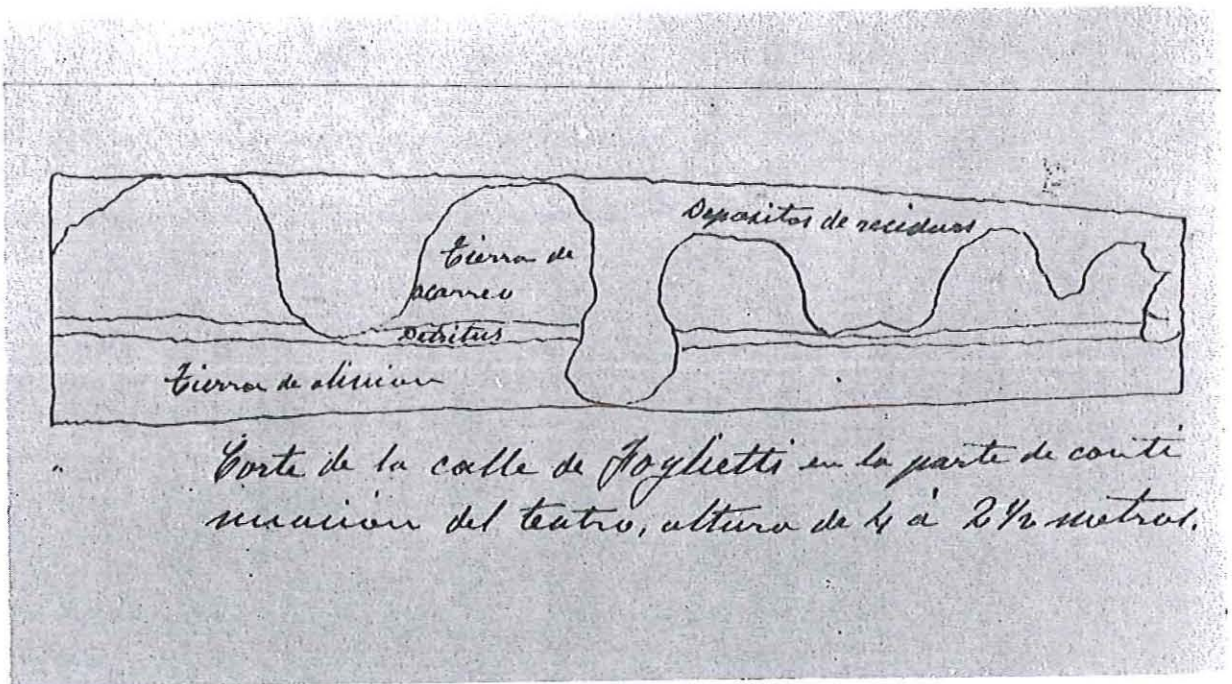 Depositos de reciduos
tierra de
acarreo
Detritus
tierra de alución
Corte de la calle de Foglietti en la parte de conti
nuación del teatro, altura de 4 á 2 1/2 metros.